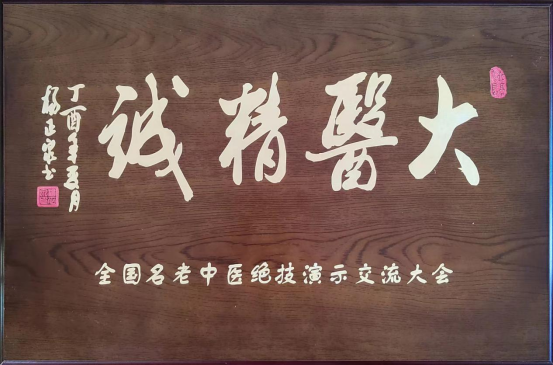 大醫精誠
丁酉年五月
楊正家书
全国名老中医绝技演示交流大会